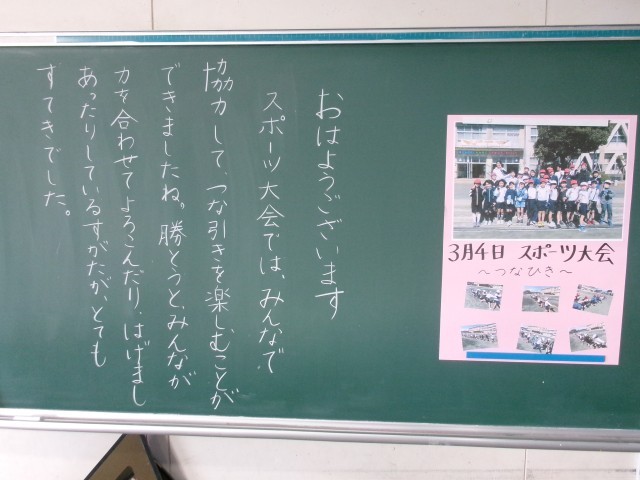 おはようございます
スポーツ大会では、みんなで
協力して、つな引きを楽しむことが
できましたね。勝とうと、みんなが
力を合わせてよろこんだり、はげまし
あったりしているすがたが、とても
すてきでした。
3月4日 スポーツ大会
～つなひき～